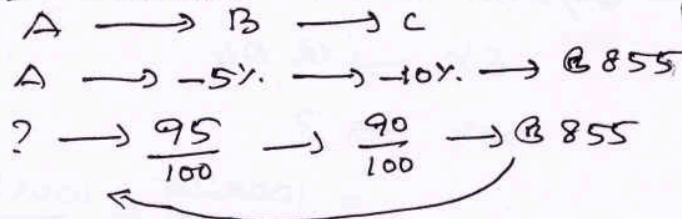 A → B → C
A → -5% → -10% → ₿ 855
? → 95/100 → 90/100 → ₿ 855